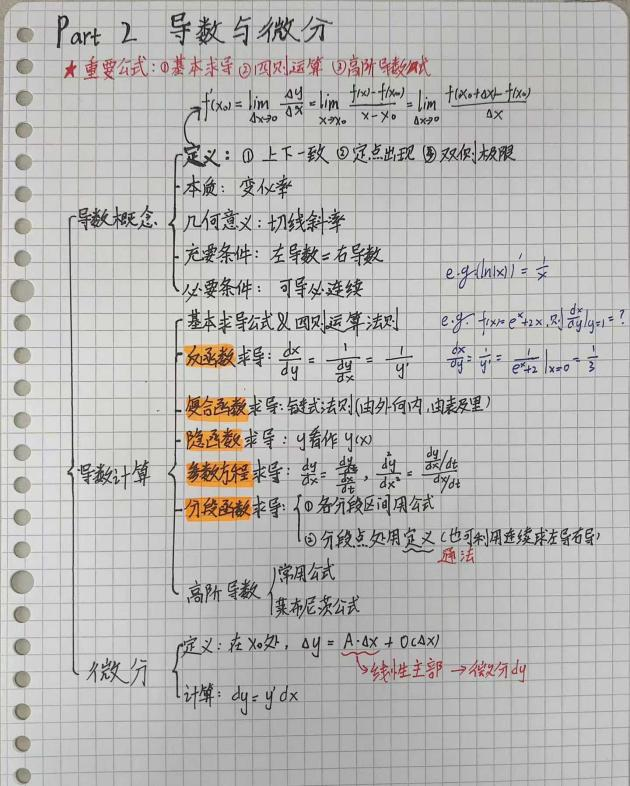 Part 2 导数与微分
★ 重要公式:①基本求导 ②四则运算 ③高阶导数公式
f'(x₀) = lim Δx→0 Δy/Δx = lim x→x₀ (f(x)-f(x₀))/(x-x₀) = lim Δx→0 (f(x₀+Δx)-f(x₀))/Δx
导数概念
定义:① 上下一致 ② 定点出现 ③ 双侧极限
本质:变化率
几何意义:切线斜率
充要条件:左导数=右导数
必要条件:可导必连续
e.g. (ln|x|)' = 1/x
导数计算
基本求导公式及四则运算法则
e.g. f(x)=e^x+2x,则 dx/dy|y=1 = ?
反函数求导:dx/dy = 1/(dy/dx) = 1/y'
dx/dy = 1/y' = 1/(e^x+2)|x=0 = 1/3
复合函数求导:链式法则(由外向内,由表及里)
隐函数求导:y看作 y(x)
参数方程求导:dy/dx = (dy/dt)/(dx/dt), d²y/dx² = (dy/dx/dt)/(dx/dt)
分段函数求导:① 各分段区间用公式
② 分段点处用定义(也可利用连续求左导右导)
通法
高阶导数
常用公式
莱布尼茨公式
微分
定义:在 x₀处, Δy = A·Δx + o(Δx)
线性主部 → 微分dy
计算:dy = y'dx